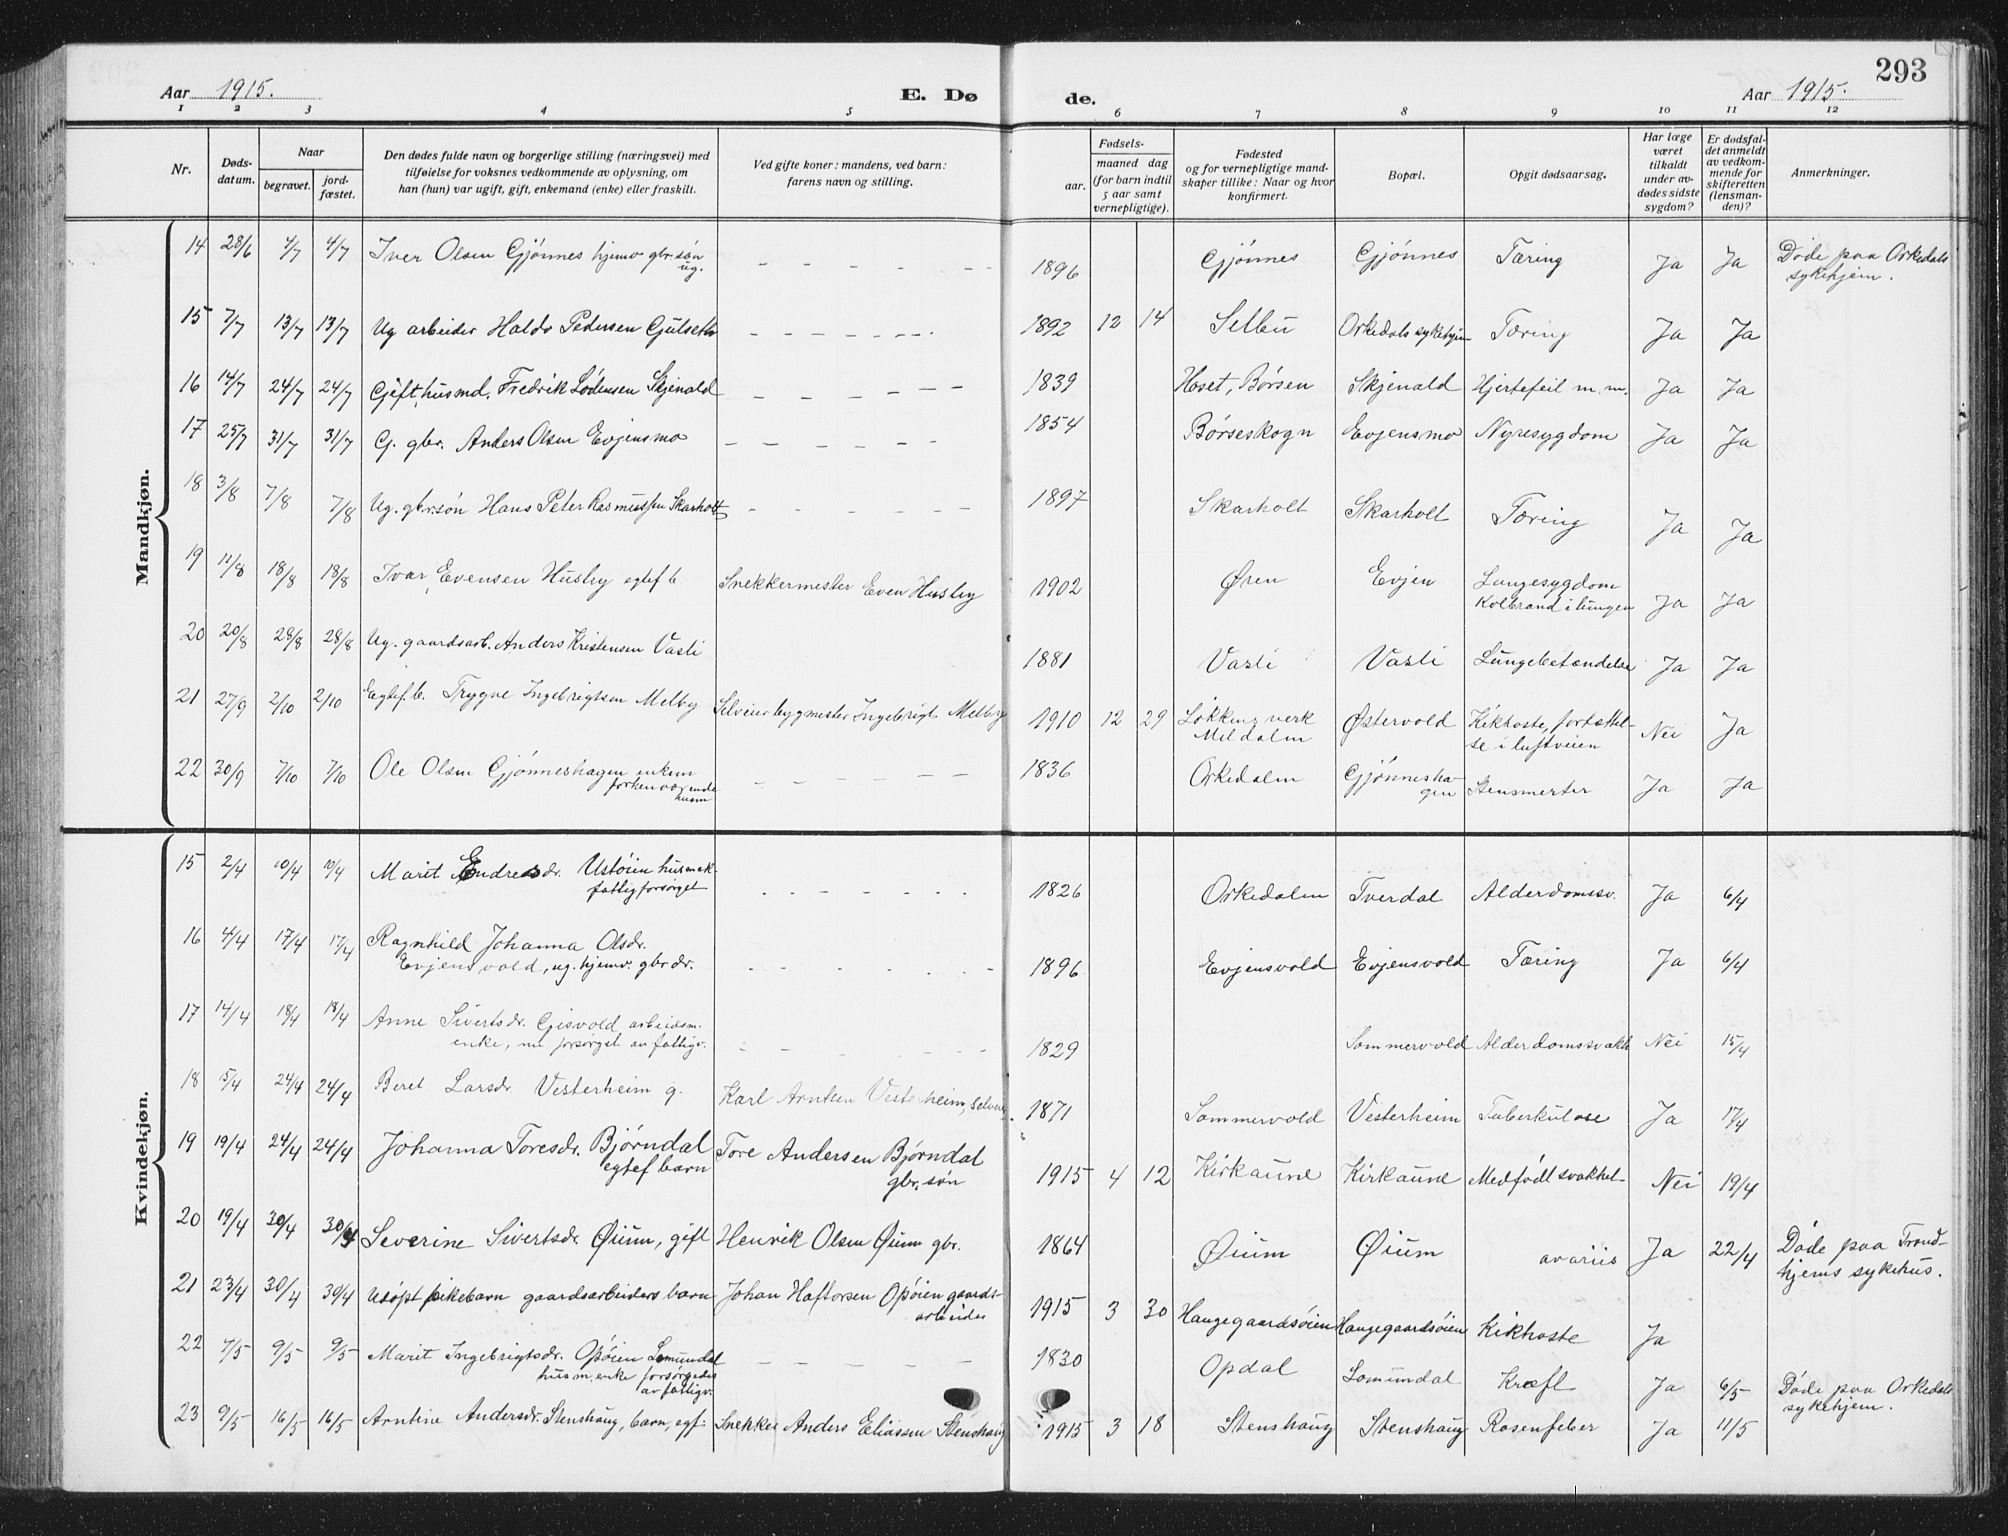 293
Aar 1915. E. Døde. Aar 1915.
1 2 3 4 5 6 7 8 9 10 11 12
Nr. Døds-datum. Naar begravet. jord-fæstet. Den dødes fulde navn og borgerlige stilling (næringsvei) med tilføielse for voksnes vedkommende av oplysning, om han (hun) var ugift, gift, enkemand (enke) eller fraskilt. Ved gifte koner: mandens, ved barn: farens navn og stilling. Fødsels- aar. maaned dag (for barn indtil 5 aar samt vernepligtige). Fødested og for vernepligtige mand-skaper tillike: Naar og hvor konfirmert. Bopæl. Opgit dødsaarsag. Har læge været tilkaldt under av-dødes sidste sygdom? Er dødsfal-det anmeldt av vedkom-mende for skifteretten (lensman-den)? Anmerkninger.
Mandkjøn.
14 28/6 4/7 4/7 Iver Olsen Gjønnes hjemv gbr.søn ug. 1896 Gjønnes Gjønnes Tæring Ja Ja Døde paa Orkedals sykehjem.
15 7/7 13/7 13/7 Ug arbeider Haldo Pedersen Gjulseth 1892 12 14 Selbu Orkedals sykehjem Tæring Ja Ja
16 14/7 24/7 24/7 Gift husmd. Fredrik Lorensen Skjenald 1839 Hoset, Børsen Skjenald Hjertefeil m.m. Ja Ja
17 25/7 31/7 31/7 G. gbr. Anders Olsen Evjensmo 1854 Børseskogn Evjensmo Nyresygdom Ja Ja
18 3/8 7/8 7/8 Ug. gbr.søn Hans Peter Rasmussen Skarholt 1897 Skarholt Skarholt Tæring Ja Ja
19 12/8 18/8 18/8 Ivar Evensen Husby egtef b. Snekkermester Even Husby 1902 Øren Evjen Lungesygdom Kolbrand i lungen Ja Ja
20 20/8 28/8 28/8 Ug. gaardsarb. Anders Kristensen Vasli 1881 Vasli Vasli Lungebetændelse Ja Ja
21 27/9 2/10 2/10 Egtef. b. Trygve Ingebrigtsen Melby Selveier bygmester Ingebrigt Melby 1910 12 29 Løkkens verk Meldalen Østervold Kikhoste, fortættelse i luftveien Nei Ja
22 30/9 7/10 7/10 Ole Olsen Gjønneshagen enkem forhenværende husm 1836 Orkedalen Gjønneshagen Stensmerter Ja Ja
Kvindekjøn.
15 2/4 10/4 10/4 Marit Endresdr. Ustøien husm.ek. fattigforsørget 1826 Orkedalen Tverdal Alderdomssv. Ja 6/4
16 4/4 17/4 17/4 Ragnhild Johanna Olsdr. Evjensvold, ug. hjemv. gbr.dr. 1896 Evjensvold Evjensvold Tæring Ja 6/4
17 14/4 18/4 18/4 Anne Sivertsdr. Gisvold arbeidsm. enke, nu forsørget av fattigv. 1829 Sommervold Alderdomssvakh Nei 15/4
18 15/4 24/4 24/4 Beret Larsdr Vesterheim g. Karl Arntsen Vesterheim, selveier 1871 Sommervold Vesterheim Tuberkulose Ja 17/4
19 19/4 24/4 24/4 Johanna Toresdr. Bjørndal egtef barn Tore Andersen Bjørndal gbr.søn 1915 4 12 Kirkaune Kirkaune Medfødt svakhet Nei 19/4
20 19/4 30/4 30/4 Severine Sivertsdr. Øium, gift Henrik Olsen Øium gbr. 1864 Øium Øium Ja 22/4 Døde paa Trondhjems sykehus.
21 23/4 30/4 30/4 Udøpt pikebarn gaardsarbeiders barn Johan Haftorsen Opøien gaardsarbeider 1915 3 30 Haugegaardsøien Haugegaardsøien Kikhoste Ja
22 7/5 9/5 9/5 Marit Ingebrigtsdr. Opøien Lomundal husm.enke forsørgedes av fattigv. 1830 Opdal Lomundal Kræft Ja 6/5 Døde paa Orkedals sykehjem.
23 9/5 16/5 16/5 Arntine Andersdr. Stenshaug, barn, egf. Snekker Anders Eliassen Stenshaug 1915 3 18 Stenshaug Stenshaug Rosenfeber Ja 11/5